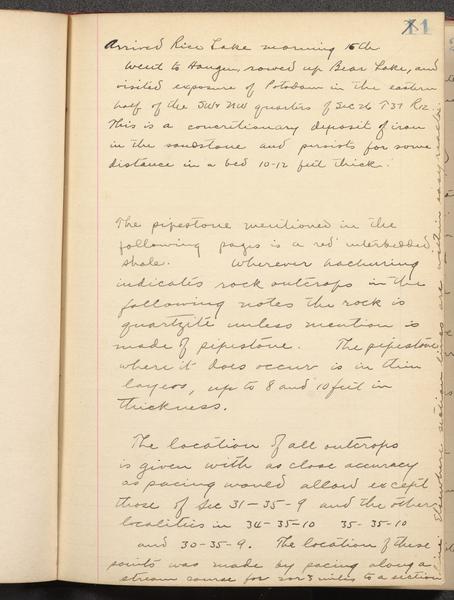 11
Arrived Rice Lake morning 16th
Went to Haugen, rowed up Bear Lake, and
visited exposure of Potsdam in the eastern
half of the SW & NW quarters of Sec 26 T 37 R12.
This is a concretionary deposit of iron
in the sandstone and persists for some
distance in a bed 10-12 feet thick.
The pipestone mentioned in the
following pages is a red interbedded
shale. Wherever hachuring
indicates rock outcrops in the
following notes the rock is
quartzite unless mention is
made of pipestone. The pipestone
where it does occur is in thin
layers, up to 8 and 10 feet in
thickness.
The location of all outcrops
is given with as close accuracy
as pacing would allow except
those of Sec 31-35-9 and the other
localities in 34-35-10 35-35-10
and 30-35-9. The location of these
points was made by pacing along a
stream course for 2 or 3 miles to a section
Elsewhere section lines are